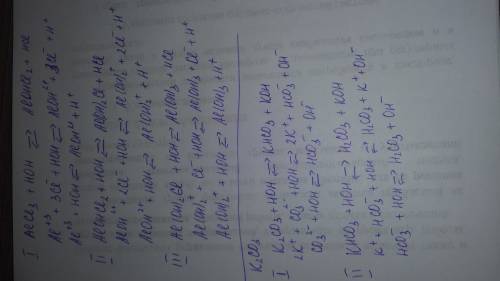 I AlCl3 + HOH ⇄ AlOHCl2 + HCl
Al+3 + 3Cl- + HOH ⇄ AlOH2+ + 3Cl- + H+
Al+3 + HOH ⇄ AlOH2+ + H+
II AlOHCl2 + HOH ⇄ Al(OH)2Cl + HCl
AlOH2+ + 2Cl- + HOH ⇄ Al(OH)2+ + 2Cl- + H+
AlOH2+ + HOH ⇄ Al(OH)2+ + H+
III Al(OH)2Cl + HOH ⇄ Al(OH)3 + HCl
Al(OH)2+ + Cl- + HOH ⇄ Al(OH)3 + Cl- + H+
Al(OH)2+ + HOH ⇄ Al(OH)3 + H+
K2CO3
I K2CO3 + HOH ⇄ KHCO3 + KOH
2K+ + CO3 2- + HOH ⇄ 2K+ + HCO3- + OH-
CO3 2- + HOH ⇄ HCO3- + OH-
II KHCO3 + HOH ⇄ H2CO3 + KOH
K+ + HCO3- + HOH ⇄ H2CO3 + K+ + OH-
HCO3- + HOH ⇄ H2CO3 + OH-